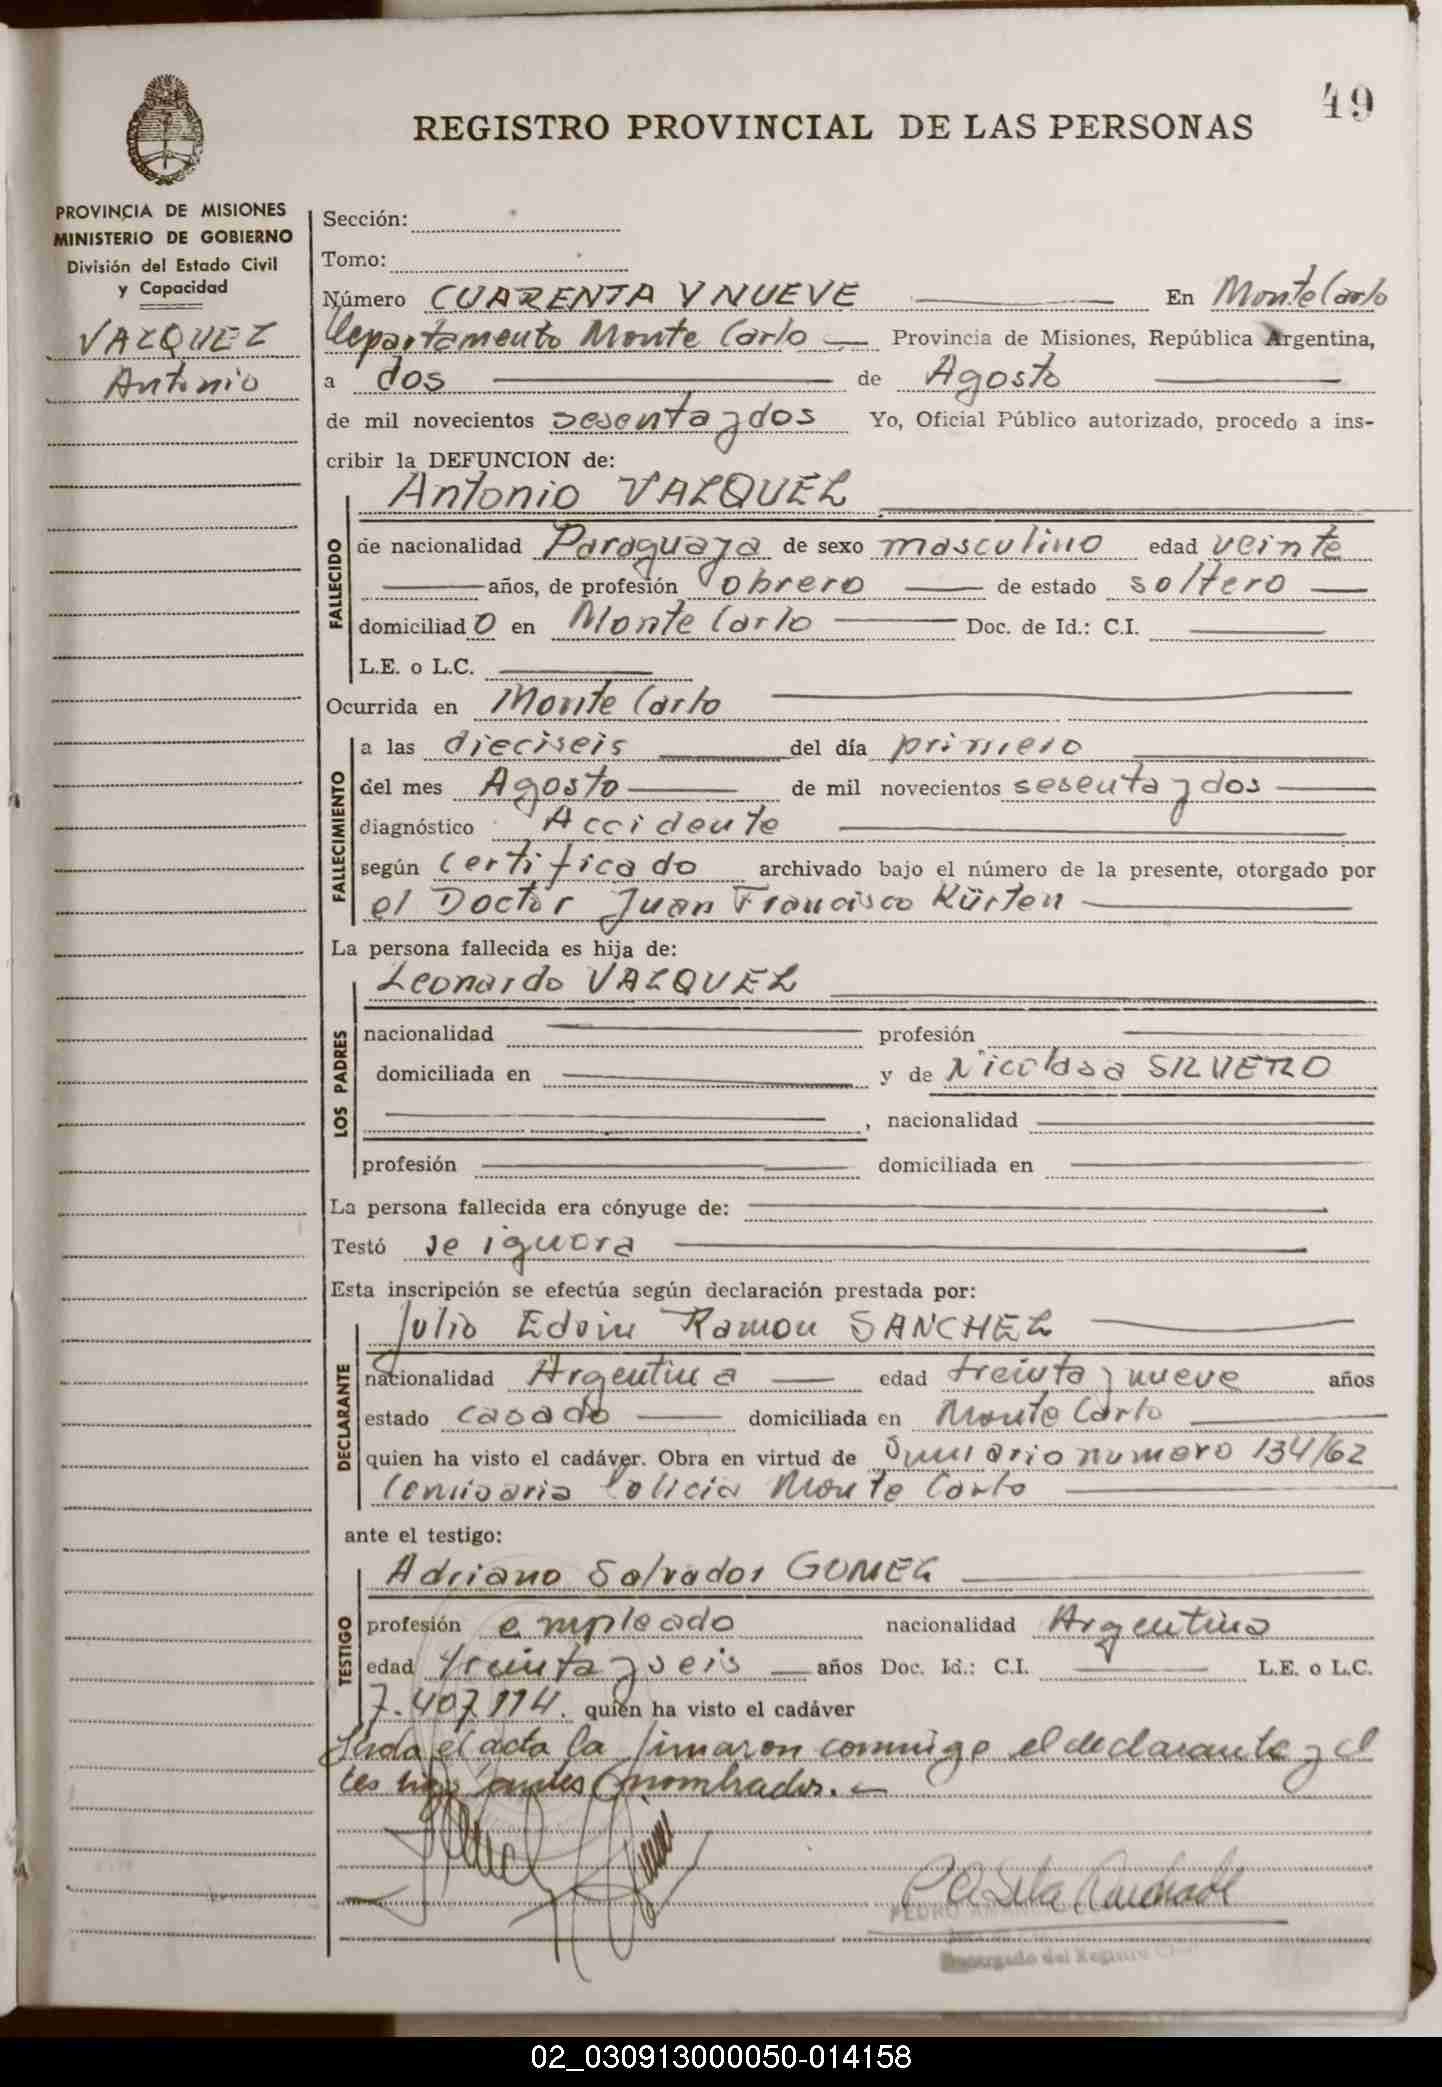 49
REGISTRO PROVINCIAL DE LAS PERSONAS
PROVINCIA DE MISIONES
MINISTERIO DE GOBIERNO
División del Estado Civil
y Capacidad
VAZQUEZ
Antonio
Sección:
Tomo:
Número CUARENTA Y NUEVE En Monte Carlo
Departamento Monte Carlo Provincia de Misiones, República Argentina,
a dos de Agosto
de mil novecientos sesenta y dos Yo, Oficial Público autorizado, procedo a ins-
cribir la DEFUNCION de:
Antonio VAZQUEZ
FALLECIDO
de nacionalidad Paraguaya de sexo masculino edad veinte
años, de profesión obrero de estado soltero
domiciliado en Monte Carlo Doc. de Id.: C.I.
L.E. o L.C.
Ocurrida en Monte Carlo
FALLECIMIENTO
a las dieciseis del día primero
del mes Agosto de mil novecientos sesenta y dos
diagnóstico Accidente
según certificado archivado bajo el número de la presente, otorgado por
el Doctor Juan Francisco Kürten
La persona fallecida es hija de:
LOS PADRES
Leonardo VAZQUEZ
nacionalidad profesión
domiciliada en y de Nicolasa SILVERO
, nacionalidad
profesión domiciliada en
La persona fallecida era cónyuge de:
Testó se ignora
Esta inscripción se efectúa según declaración prestada por:
DECLARANTE
Julio Edvin Ramon SANCHEZ
nacionalidad Argentina edad treinta y nueve años
estado casado domiciliada en Monte Carlo
quien ha visto el cadáver. Obra en virtud de Sumario numero 134/62
Comisaria Policia Monte Carlo
ante el testigo:
TESTIGO
Adriano Salvador GOMEZ
profesión empleado nacionalidad Argentina
edad treinta y seis años Doc. Id.: C.I. L.E. o L.C.
7.407.114. quien ha visto el cadáver
Leida el acta la firmaron conmigo el declarante y el
testigo antes nombrados.
PEDRO
Encargado del Registro Civil
02_030913000050-014158